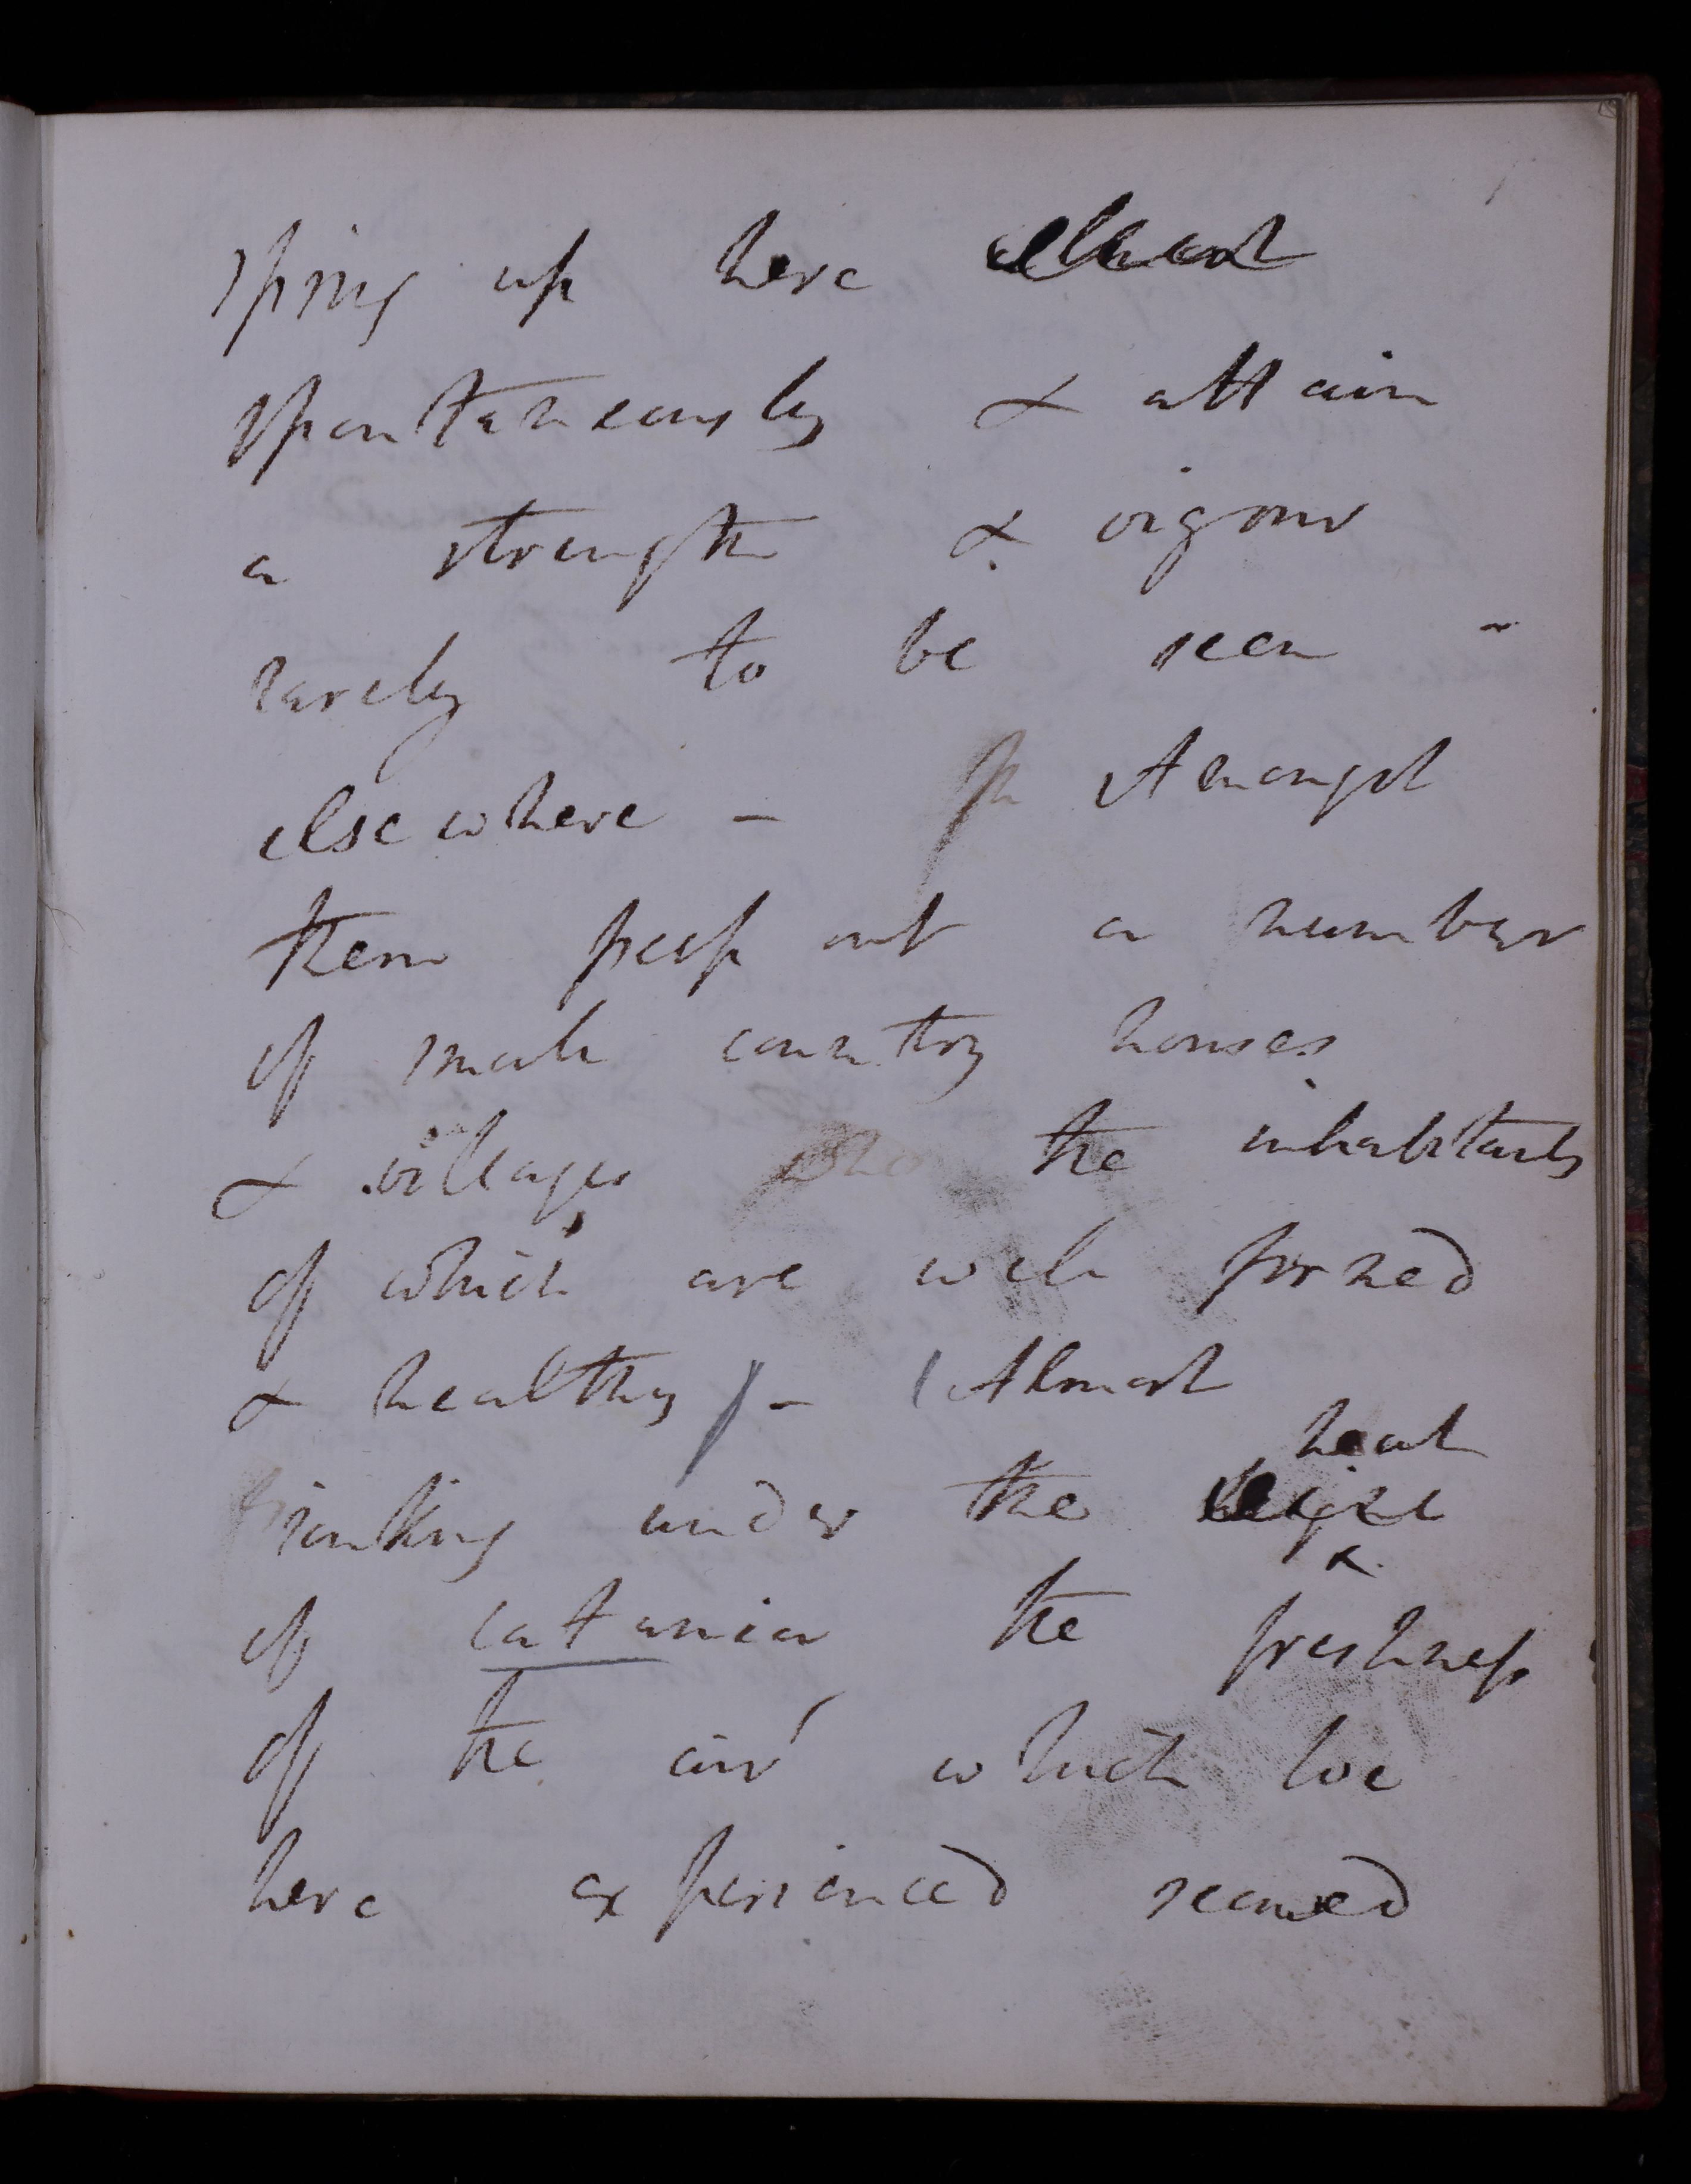 spring up here almost
spontaneously & attain
a strength & vigour
rarely to be seen -
elsewhere - Amongst
them peep out a number
of small country houses
& villages the inhabitants
of which are well formed
& healthy/- (Almost
heat
sinking under the
of Catania the freshness
of the air which we
here experienced seemed